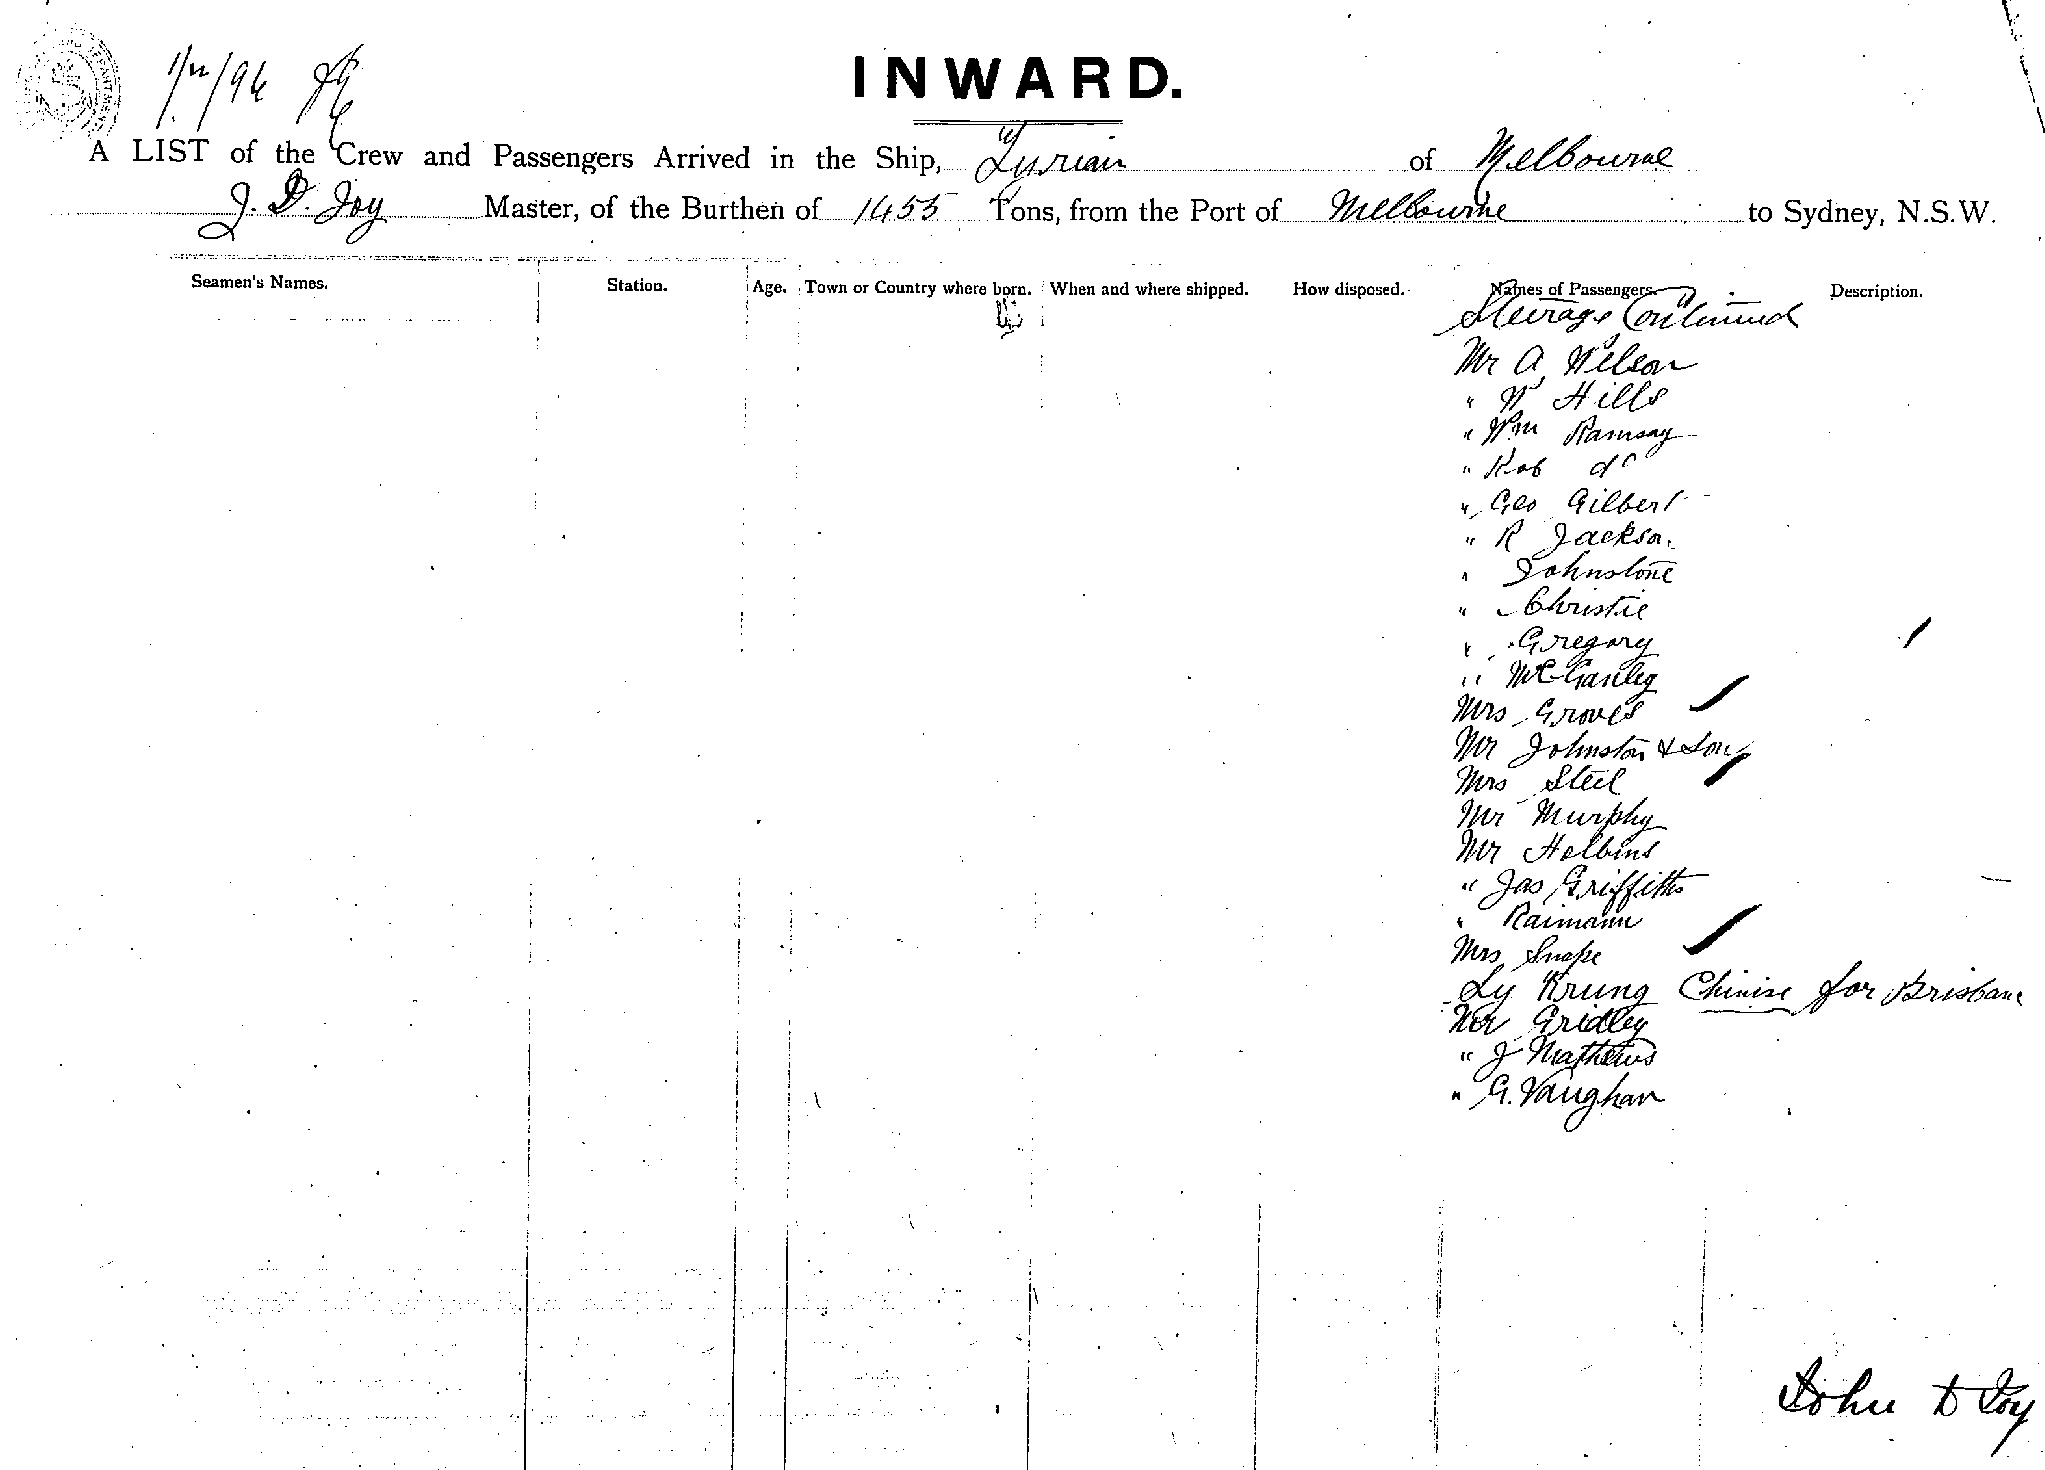 1/12/96
INWARD.
A LIST of the Crew and Passengers Arrived in the Ship, Tyrian of Melbourne
J. D. Joy Master, of the Burthen of 1455 Tons, from the Port of Melbourne to Sydney, N.S.W.
Seamen's Names. Station. Age. Town or Country where born. When and where shipped. How disposed. Names of Passengers. Description.
Steerage Continued
Mr A Wilson
" W Hills
" Wm Ramsay
" Rob do
" Geo Gilbert
" R Jackson
" Johnstone
" Christie
" Gregory
" McGanley
Mrs Groves
Mr Johnston & Son
Mrs Steel
Mr Murphy
Mr Holbins
" Jas Griffiths
" Raimann
Mrs Snape
Ly Krung Chinese for Brisbane
Mr Gridley
" J Mathews
" G. Vaughan
John D Joy